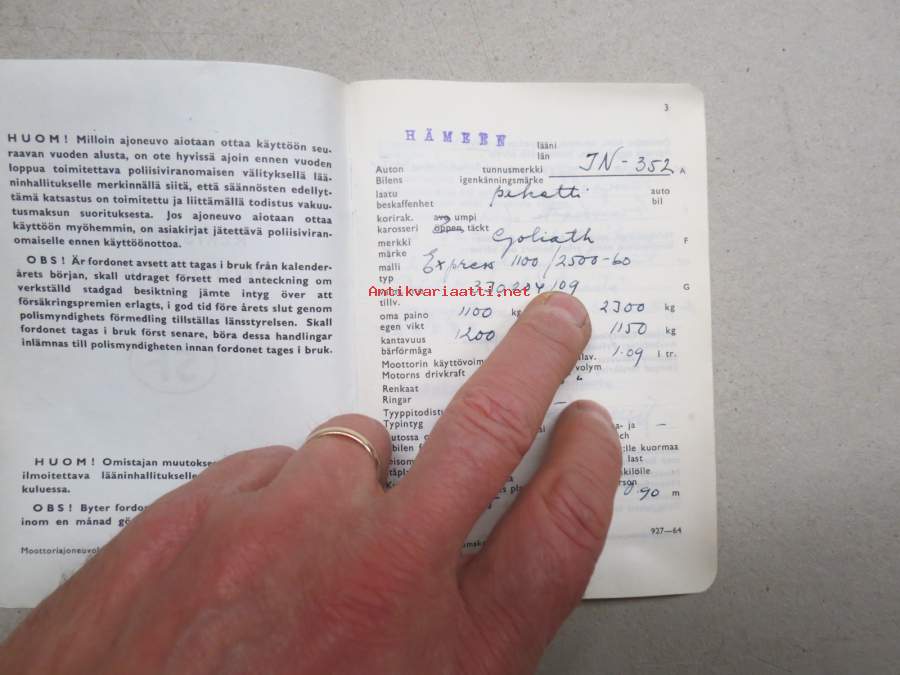 HUOM! Milloin ajoneuvo aiotaan ottaa käyttöön seu-
raavan vuoden alusta, on ote hyvissä ajoin ennen vuoden
loppua toimitettava poliisiviranomaisen välityksellä lää-
ninhallitukselle merkinnällä siitä, että säännösten edellyt-
tämä katsastus on toimitettu ja liittämällä todistus vakuu-
tusmaksun suorituksesta. Jos ajoneuvo aiotaan ottaa
käyttöön myöhemmin, on asiakirjat jätettävä poliisiviran-
omaiselle ennen käyttöönottoa.
OBS! Är fordonet avsett att tagas i bruk från kalender-
årets början, skall utdraget försett med anteckning om
verkställd stadgad besiktning jämte intyg över att
försäkringspremien erlagts, i god tid före årets slut genom
polismyndighets förmedling tillställas länsstyrelsen. Skall
fordonet tagas i bruk först senare, böra dessa handlingar
inlämnas till polismyndigheten innan fordonet tages i bruk.
HUOM! Omistajan muutokse
ilmoitettava lääninhallitukselle
kuluessa.
OBS! Byter fordon
inom en månad gö
Moottoriajoneuvol
3
HÄMEEN
lääni
län
Auton tunnusmerkki IN-352 A
Bilens igenkänningsmärke
laatu pakatti auto
beskaffenhet bil
korirak. avo umpi
karosseri öppen, täckt
merkki Goliath F
märke
malli Express 1100/2500-60
typ
Antikvariaatti.net
330204109 G
tillv.
oma paino 1100 kg 2300 kg
egen vikt
kantavuus 1200 1150 kg
bärförmåga
Moottorin käyttövoim alav. 1.09 l tr.
Motorns drivkraft volym
Renkaat
Ringar
Tyyppitodistu a- ja —
Typintyg ch
utossa o :lle kuormaa
bilen last
kilölle
rson
0.90 m
927—64